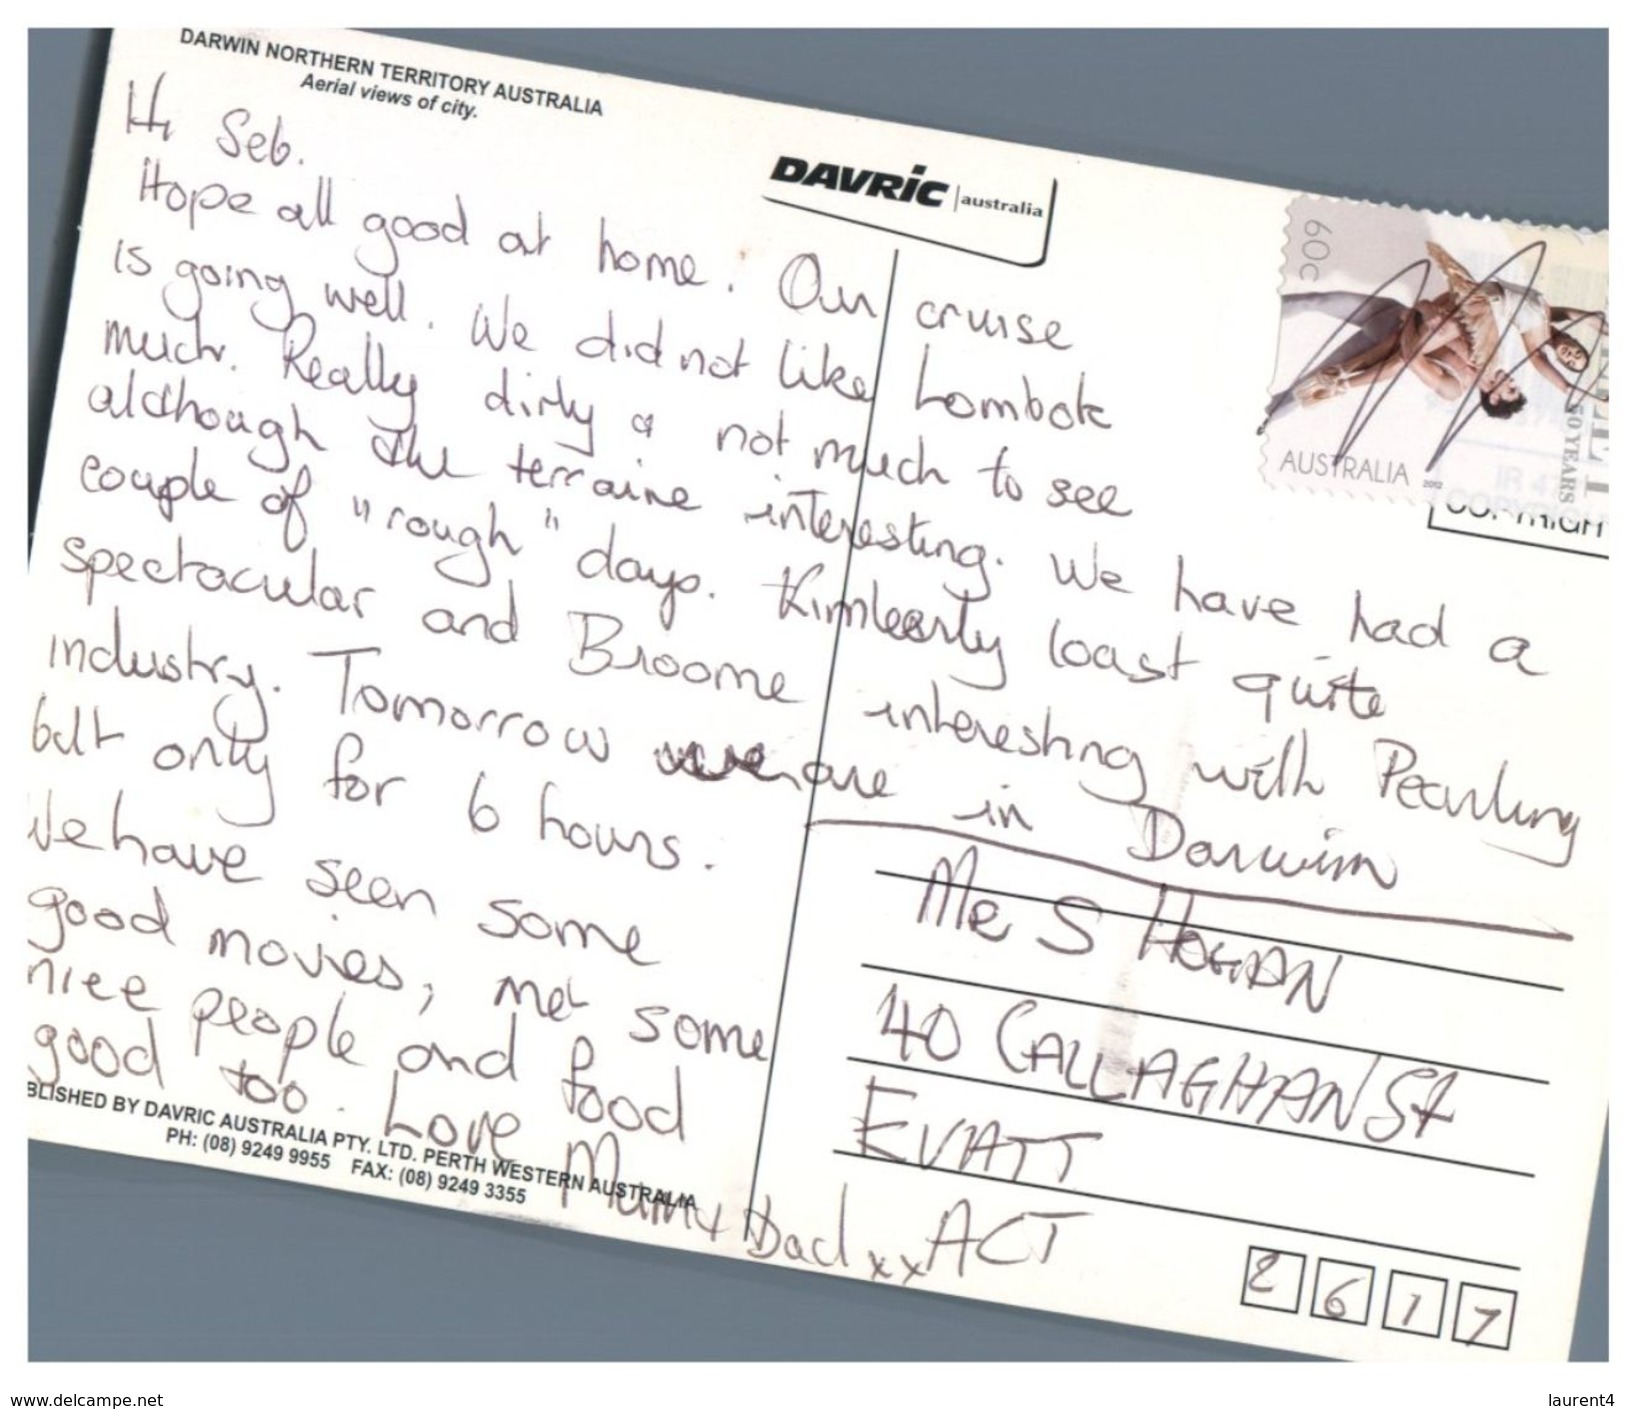 DARWIN NORTHERN TERRITORY AUSTRALIA
Aerial views of city.
DAVRIC australia
60c
AUSTRALIA 2012
50 YEARS
COPYRIGH
Hi Seb.
Hope all good at home. Our cruise
is going well. We did not like Lombok
much. Really dirty & not much to see
although the terraine interesting. We have had a
couple of "rough" days. Kimberly coast quite
spectacular and Broome interesting with Pearling
industry. Tomorrow we are in Darwin
but only for 6 hours.
We have seen some
good movies, met some
nice people and food
good too. Love
Mum & Dad xx
Mr S HOGAN
40 CALLAGHAN St
EVATT
ACT
2617
BLISHED BY DAVRIC AUSTRALIA PTY. LTD. PERTH WESTERN AUSTRALIA
PH: (08) 9249 9955 FAX: (08) 9249 3355
www.delcampe.net
laurent4